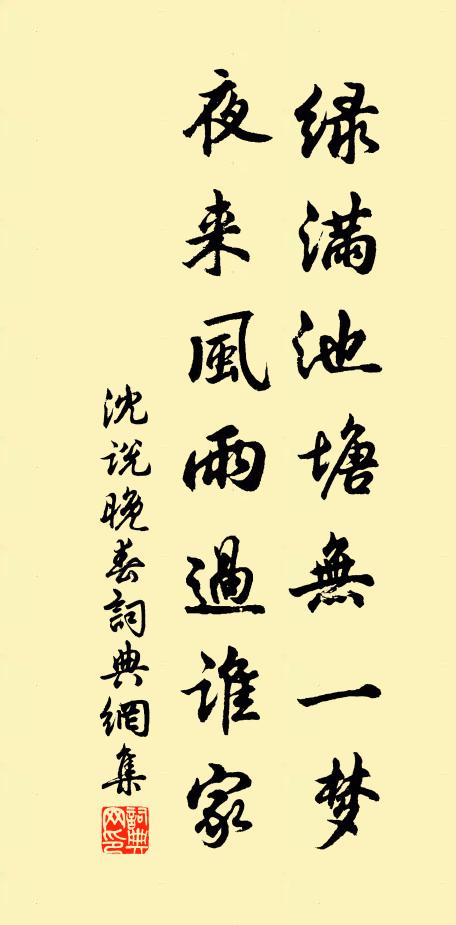 绿满池塘無一梦
夜来風雨過谁家
沈说晚春詞典網集
詞典网印